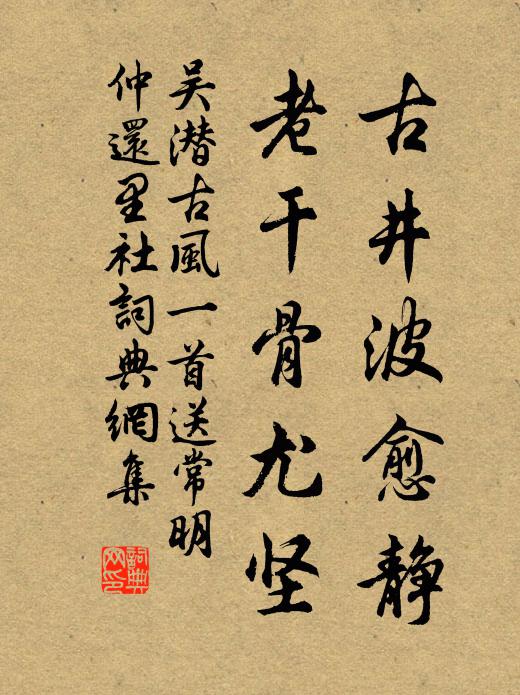 古井波愈静
老干骨尤坚
吴潜古風一首送常明
仲還里社詞典網集
詞典网印